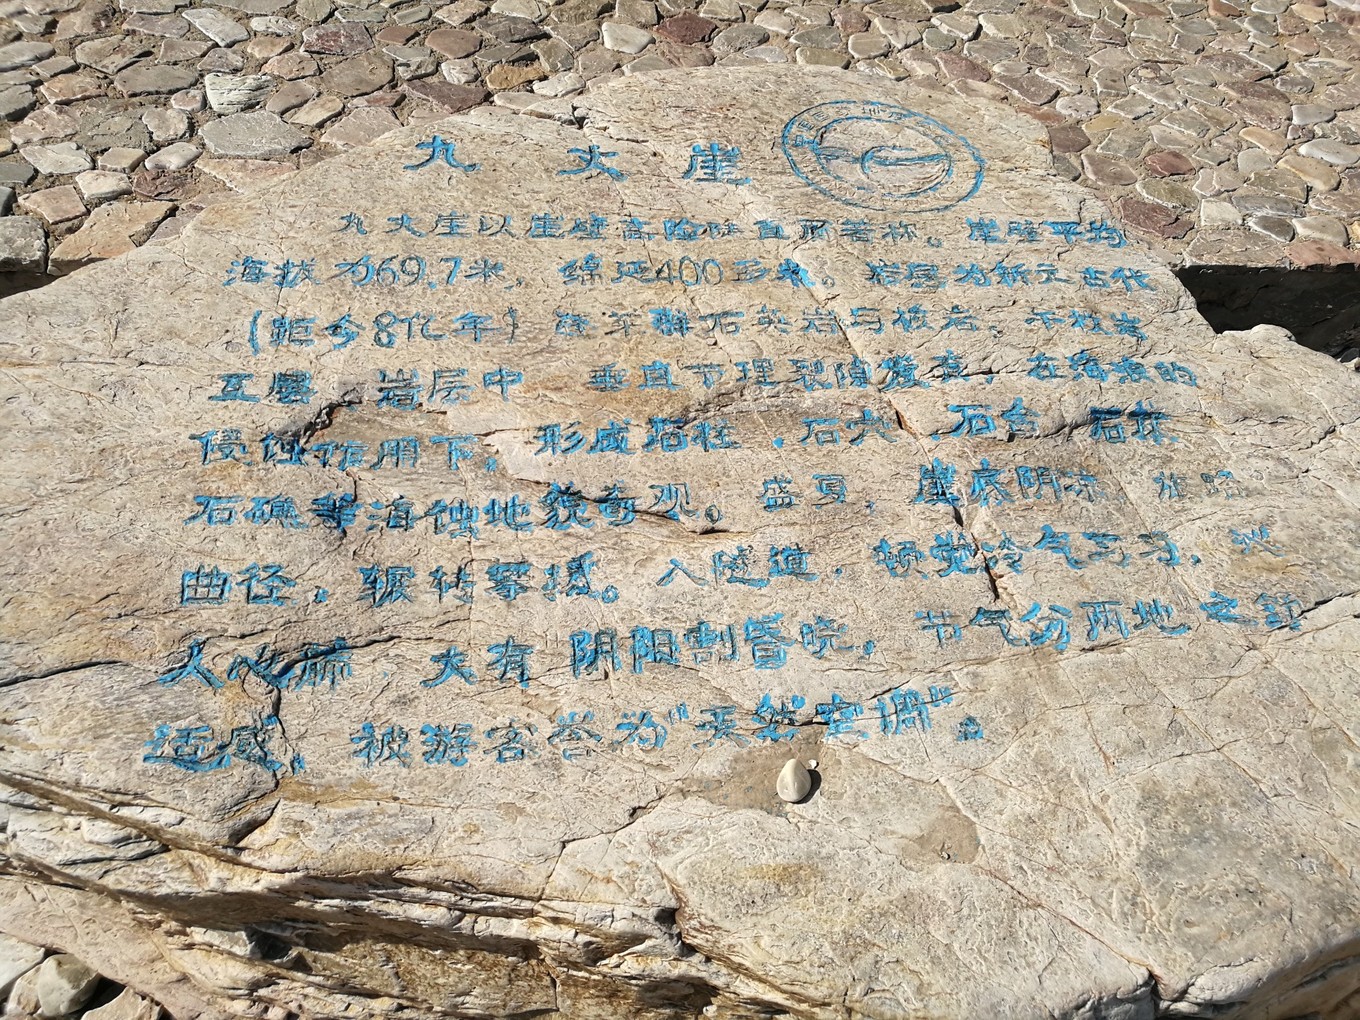 九丈崖
九丈崖以崖壁高险陡直而著称。崖壁平均
海拔为69.7米，绵延400多米。岩层为新元古代
(距今8亿年)蓬莱群石英岩与板岩。千枚岩
互层，岩层中 垂直节理裂隙发育，在海浪的
侵蚀作用下，形成石柱、石穴、石台、石坎
石礁等海蚀地貌奇观。盛夏，崖底阴凉，
曲径，辗转攀援。入隧道，顿觉冷气习习，沁
人心脾，大有阴阳割昏晓，节气分两地之舒
适感，被游客誉为"天然空调"。